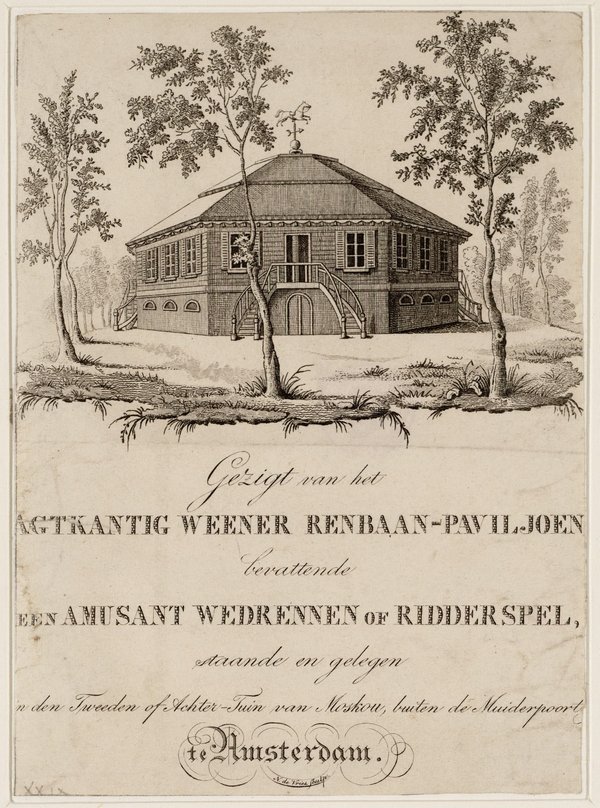 Gezigt van het
AGTKANTIG WEENER RENBAAN-PAVILJOEN
bevattende
EEN AMUSANT WEDRENNEN OF RIDDERSPEL,
staande en gelegen
in den Tweeden of Achter-Tuin van Moskou, buiten de Muiderpoort
te Amsterdam.
de Vries Sculp
XXIX